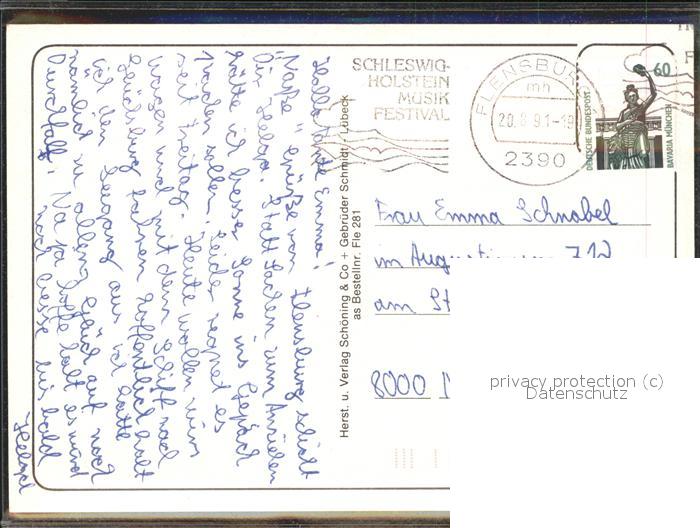 Hallo Tante Emma!
Nasse Grüße von Flensburg schickt
Dir Helga. Statt Sachen zum Anziehen
hätte ich besser Sonne ins Gepäck
packen sollen! Leider regnet es
seit Freitag. Heute wollen wir
morgen und mit dem Schiff nach
Glücksburg fahren hoffentlich hält
ich den Seegang aus ich hatte
nämlich zu allem Glück auch noch
Durchfall. Na ja hoffe halt es wird
noch besser bis bald
Helga
Herst. u. Verlag Schöning & Co + Gebrüder Schmidt / Lübeck
as Bestellnr. Fle 281
SCHLESWIG-
HOLSTEIN
MUSIK
FESTIVAL
FLENSBURG
mh
20.8.91-19
2390
60
DEUTSCHE BUNDESPOST
BAVARIA MÜNCHEN
Frau Emma Schnabel
im
am St
8000
privacy protection (c)
Datenschutz